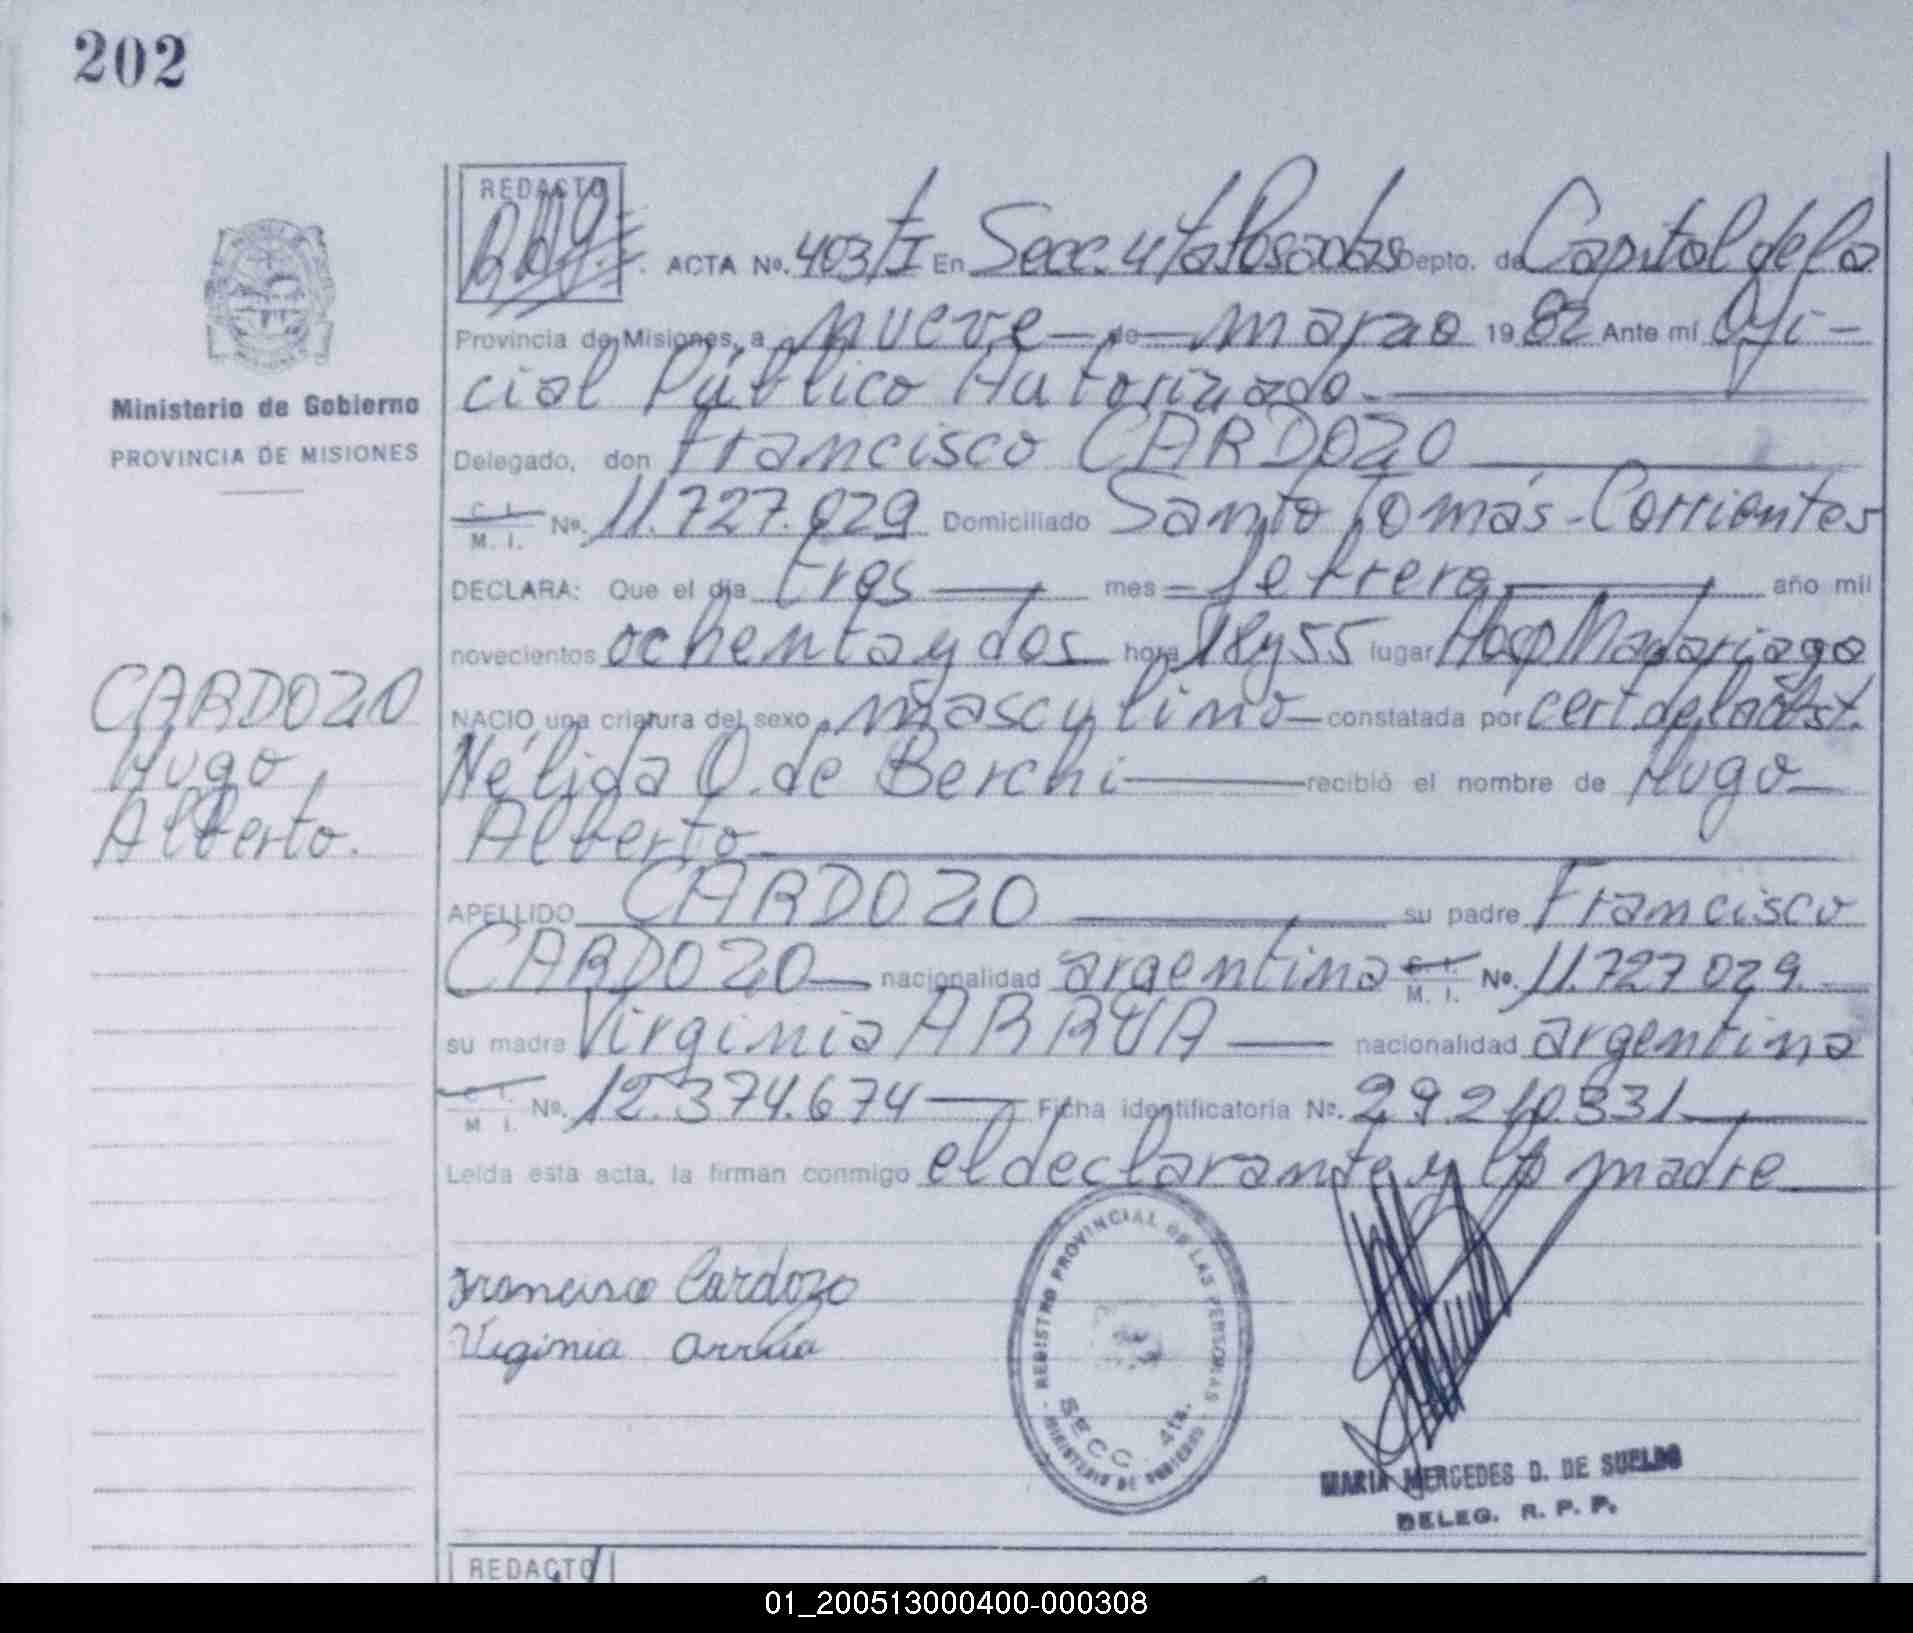 202
REDACTO
ACTA Nº. 403/I En Secc. 4ta Posadas Depto. de Capital de la
Provincia de Misiones, a nueve de marzo 1982 Ante mí Ofi-
cial Público Autorizado.
Ministerio de Gobierno
PROVINCIA DE MISIONES
Delegado, don Francisco CARDOZO
C. I.
M. I. Nº. 11.727.029 Domiciliado Santo Tomás - Corrientes
DECLARA: Que el día tres mes febrero año mil
novecientos ochenta y dos hora 18 y 55 lugar Hosp Madariaga
NACIO una criatura del sexo masculino constatada por cert de la obst.
Nélida O. de Berchi recibió el nombre de Hugo
Alberto
CARDOZO
Hugo
Alberto.
APELLIDO CARDOZO su padre Francisco
CARDOZO nacionalidad argentina C. I. M. I. Nº. 11.727.029.
su madre Virginia ARRUA nacionalidad argentina
C. I.
M. I. Nº. 12.374.674 Ficha identificatoria Nº. 29.210.331
Leída esta acta, la firman conmigo el declarante y la madre
Francisco Cardozo
Viginia Arrua
REGISTRO PROVINCIAL DE LAS PERSONAS
SECC. 4ta.
- MINISTERIO DE GOBIERNO -
MARIA MERCEDES D. DE SUELDO
DELEG. R. P. P.
REDACTO
01_200513000400-000308